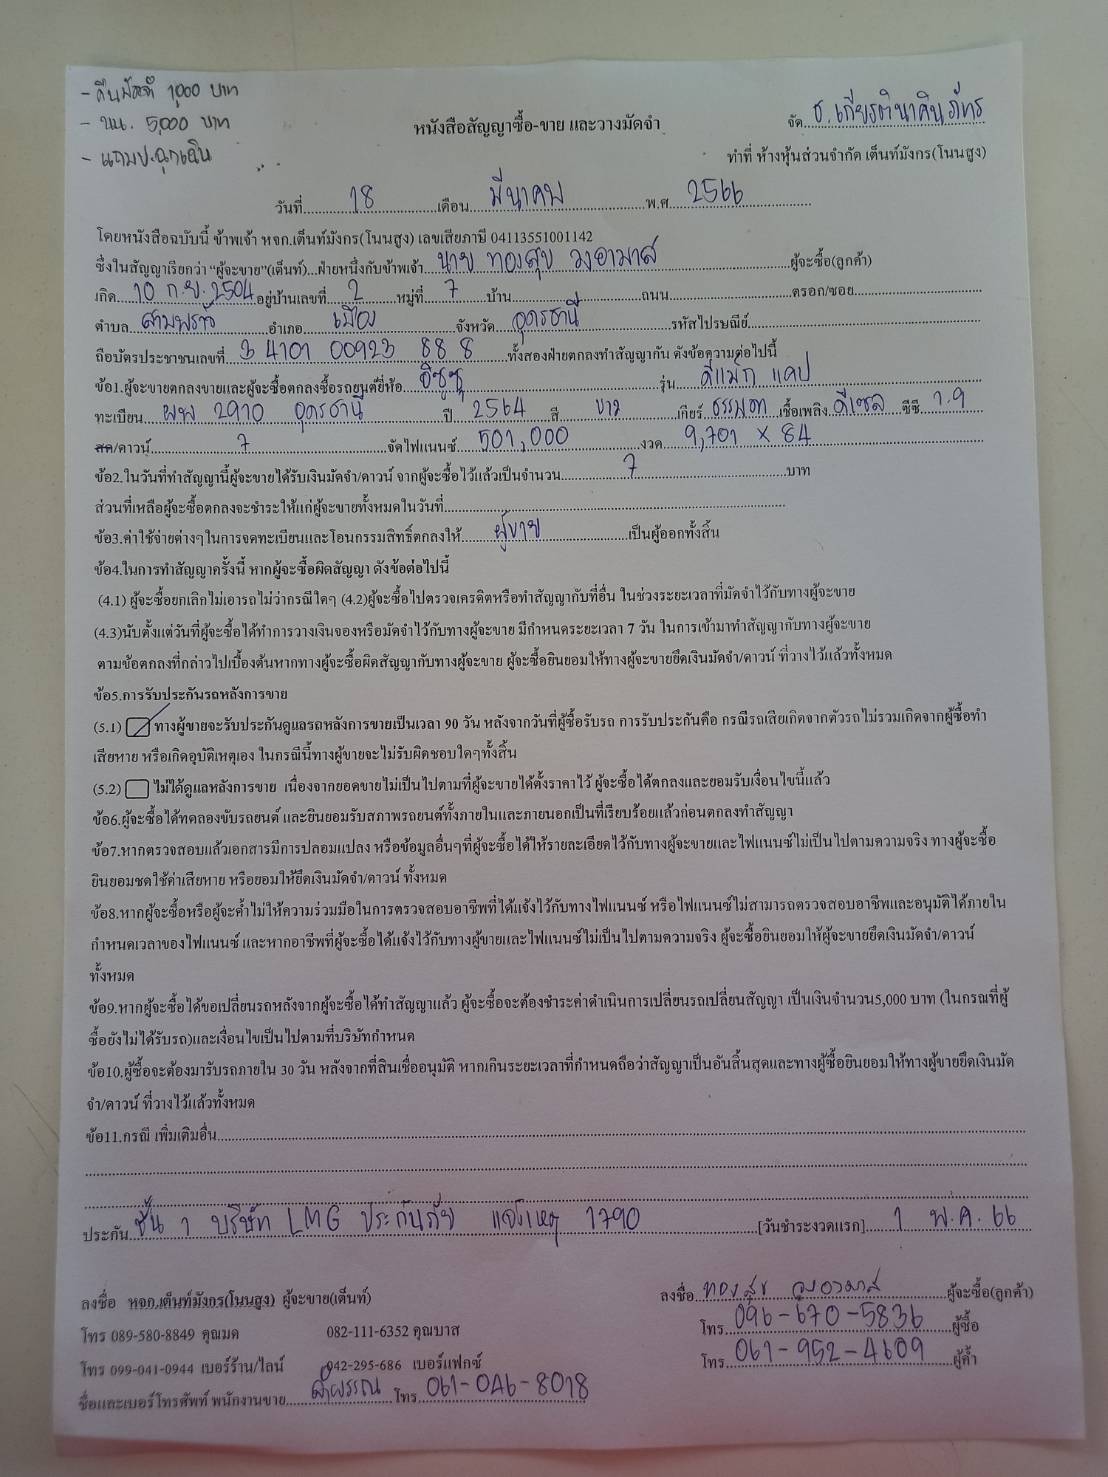 - คืนมัดจำ 1,000 บาท
- นน. 5,000 บาท
- แถมป.ฉุกเฉิน
จัด ธ.เกียรตินาคินภัทร
หนังสือสัญญาซื้อ-ขาย และวางมัดจำ
ทำที่ ห้างหุ้นส่วนจำกัด เต็นท์มังกร(โนนสูง)
วันที่ 18 เดือน มีนาคม พ.ศ. 2566
โดยหนังสือฉบับนี้ ข้าพเจ้า หจก.เต็นท์มังกร(โนนสูง) เลขเสียภาษี 04113551001142
ซึ่งในสัญญาเรียกว่า “ผู้จะขาย”(เต็นท์)...ฝ่ายหนึ่งกับข้าพเจ้า นาย ทองสุข วงอามาส ผู้จะซื้อ(ลูกค้า)
เกิด 10 ก.ย. 2504 อยู่บ้านเลขที่ 2 หมู่ที่ 7 บ้าน ถนน ตรอก/ซอย
ตำบล สามพร้าว อำเภอ เมือง จังหวัด อุดรธานี รหัสไปรษณีย์
ถือบัตรประชาชนเลขที่ 3 4101 00923 88 8 ทั้งสองฝ่ายตกลงทำสัญญากัน ดังข้อความต่อไปนี้
ข้อ1.ผู้จะขายตกลงขายและผู้จะซื้อตกลงซื้อรถยนต์ยี่ห้อ อีซูซุ รุ่น ดีแม็ก แคป
ทะเบียน ผพ 2910 อุดรธานี ปี 2564 สี ขาว เกียร์ ธรรมดา เชื้อเพลิง ดีเซล ซีซี 1.9
สด/ดาวน์ 7 จัดไฟแนนซ์ 501,000 งวด 9,701 x 84
ข้อ2.ในวันที่ทำสัญญานี้ผู้จะขายได้รับเงินมัดจำ/ดาวน์ จากผู้จะซื้อไว้แล้วเป็นจำนวน 7 บาท
ส่วนที่เหลือผู้จะซื้อตกลงจะชำระให้แก่ผู้จะขายทั้งหมดในวันที่
ข้อ3.ค่าใช้จ่ายต่างๆในการจดทะเบียนและโอนกรรมสิทธิ์ตกลงให้ ผู้ขาย เป็นผู้ออกทั้งสิ้น
ข้อ4.ในการทำสัญญาครั้งนี้ หากผู้จะซื้อผิดสัญญา ดังข้อต่อไปนี้
(4.1) ผู้จะซื้อยกเลิกไม่เอารถไม่ว่ากรณีใดๆ (4.2)ผู้จะซื้อไปตรวจเครดิตหรือทำสัญญากับที่อื่น ในช่วงระยะเวลาที่มัดจำไว้กับทางผู้จะขาย
(4.3)นับตั้งแต่วันที่ผู้จะซื้อได้ทำการวางเงินจองหรือมัดจำไว้กับทางผู้จะขาย มีกำหนดระยะเวลา 7 วัน ในการเข้ามาทำสัญญากับทางผู้จะขาย
ตามข้อตกลงที่กล่าวไปเบื้องต้นหากทางผู้จะซื้อผิดสัญญากับทางผู้จะขาย ผู้จะซื้อยินยอมให้ทางผู้จะขายยึดเงินมัดจำ/ดาวน์ ที่วางไว้แล้วทั้งหมด
ข้อ5.การรับประกันรถหลังการขาย
(5.1) ทางผู้ขายจะรับประกันดูแลรถหลังการขายเป็นเวลา 90 วัน หลังจากวันที่ผู้ซื้อรับรถ การรับประกันคือ กรณีรถเสียเกิดจากตัวรถ ไม่รวมเกิดจากผู้ซื้อทำ
เสียหาย หรือเกิดอุบัติเหตุเอง ในกรณีนี้ทางผู้ขายจะไม่รับผิดชอบใดๆทั้งสิ้น
(5.2) ไม่ได้ดูแลหลังการขาย เนื่องจากยอดขายไม่เป็นไปตามที่ผู้จะขายได้ตั้งราคาไว้ ผู้จะซื้อได้ตกลงและยอมรับเงื่อนไขนี้แล้ว
ข้อ6.ผู้จะซื้อได้ทดลองขับรถยนต์ และยินยอมรับสภาพรถยนต์ทั้งภายในและภายนอกเป็นที่เรียบร้อยแล้วก่อนตกลงทำสัญญา
ข้อ7.หากตรวจสอบแล้วเอกสารมีการปลอมแปลง หรือข้อมูลอื่นๆที่ผู้จะซื้อได้ให้รายละเอียดไว้กับทางผู้จะขายและไฟแนนซ์ไม่เป็นไปตามความจริง ทางผู้จะซื้อ
ยินยอมชดใช้ค่าเสียหาย หรือยอมให้ยึดเงินมัดจำ/ดาวน์ ทั้งหมด
ข้อ8.หากผู้จะซื้อหรือผู้จะค้ำไม่ให้ความร่วมมือในการตรวจสอบอาชีพที่ได้แจ้งไว้กับทางไฟแนนซ์ หรือไฟแนนซ์ไม่สามารถตรวจสอบอาชีพและอนุมัติได้ภายใน
กำหนดเวลาของไฟแนนซ์ และหากอาชีพที่ผู้จะซื้อได้แจ้งไว้กับทางผู้ขายและไฟแนนซ์ไม่เป็นไปตามความจริง ผู้จะซื้อยินยอมให้ผู้จะขายยึดเงินมัดจำ/ดาวน์
ทั้งหมด
ข้อ9.หากผู้จะซื้อได้ขอเปลี่ยนรถหลังจากผู้จะซื้อได้ทำสัญญาแล้ว ผู้จะซื้อจะต้องชำระค่าดำเนินการเปลี่ยนรถเปลี่ยนสัญญา เป็นเงินจำนวน5,000 บาท (ในกรณที่ผู้
ซื้อยังไม่ได้รับรถ)และเงื่อนไขเป็นไปตามที่บริษัทกำหนด
ข้อ10.ผู้ซื้อจะต้องมารับรถภายใน 30 วัน หลังจากที่สินเชื่ออนุมัติ หากเกินระยะเวลาที่กำหนดถือว่าสัญญาเป็นอันสิ้นสุดและทางผู้ซื้อยินยอมให้ทางผู้ขายยึดเงินมัด
จำ/ดาวน์ ที่วางไว้แล้วทั้งหมด
ข้อ11.กรณี เพิ่มเติมอื่น
ประกัน ชั้น 1 บริษัท LMG ประกันภัย แจ้งเหตุ 1790 [วันชำระงวดแรก] 1 พ.ค. 66
ลงชื่อ หจก.เต็นท์มังกร(โนนสูง) ผู้จะขาย(เต็นท์) ลงชื่อ ทองสุข วงอามาส ผู้จะซื้อ(ลูกค้า)
โทร 089-580-8849 คุณมด 082-111-6352 คุณบาส โทร. 096-670-5836 ผู้ซื้อ
โทร 099-041-0944 เบอร์ร้าน/ไลน์ 042-295-686 เบอร์แฟกซ์ โทร. 061-952-4609 ผู้ค้ำ
ชื่อและเบอร์โทรศัพท์ พนักงานขาย ลำพรรณ โทร. 061-046-8018